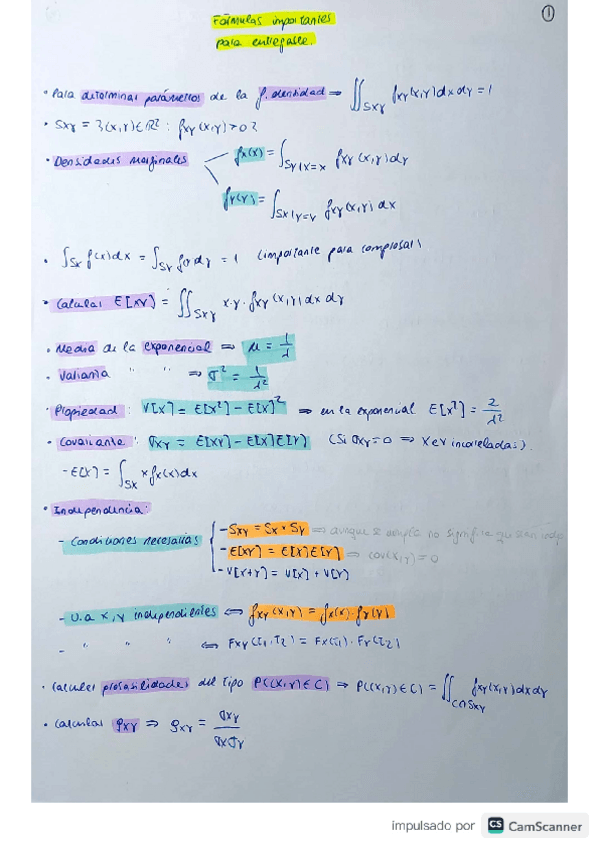 Fórmulas importantes
para entregable.
①
• Para determinar parámetros de la f. densidad ⇒ ∬_{Sxy} fxy(x,y)dxdy = 1
• Sxy = {(x,y)∈ℝ² : fxy(x,y)>0}
• Densidades marginales
fx(x) = ∫_{Sy|x=x} fxy(x,y)dy
fy(y) = ∫_{Sx|y=y} fxy(x,y)dx
• ∫_{Sx} f(x)dx = ∫_{Sy} f(y)dy = 1 (importante para comprobar)
• Calcular E[XY] = ∬_{Sxy} x·y·fxy(x,y)dxdy
• Media de la exponencial ⇒ μ = 1/λ
• Varianza " " ⇒ σ² = 1/λ²
• Propiedad: V[X] = E[X²] − E[X]² ⇒ en la exponencial E[X²] = 2/λ²
• Covarianza: σxy = E[XY] − E[X]E[Y] (Si σxy = 0 ⇒ X e Y incorreladas).
− E[X] = ∫_{Sx} x fx(x)dx
• Independencia:
− Condiciones necesarias
− Sxy = Sx × Sy ⇒ aunque se cumpla no significa que sean indep
− E[XY] = E[X]E[Y] ⇒ cov(x,y) = 0
− V[X+Y] = V[X] + V[Y]
− v.a X,Y independientes ⇔ fxy(x,y) = fx(x)·fy(y)
− " " " ⇔ Fxy(t1,t2) = Fx(t1)·Fy(t2)
• Calcular probabilidades del tipo P((X,Y)∈C) ⇒ P((X,Y)∈C) = ∬_{C∩Sxy} fxy(x,y)dxdy
• Calcular ρxy ⇒ ρxy = σxy/σxσy
impulsado por CS CamScanner